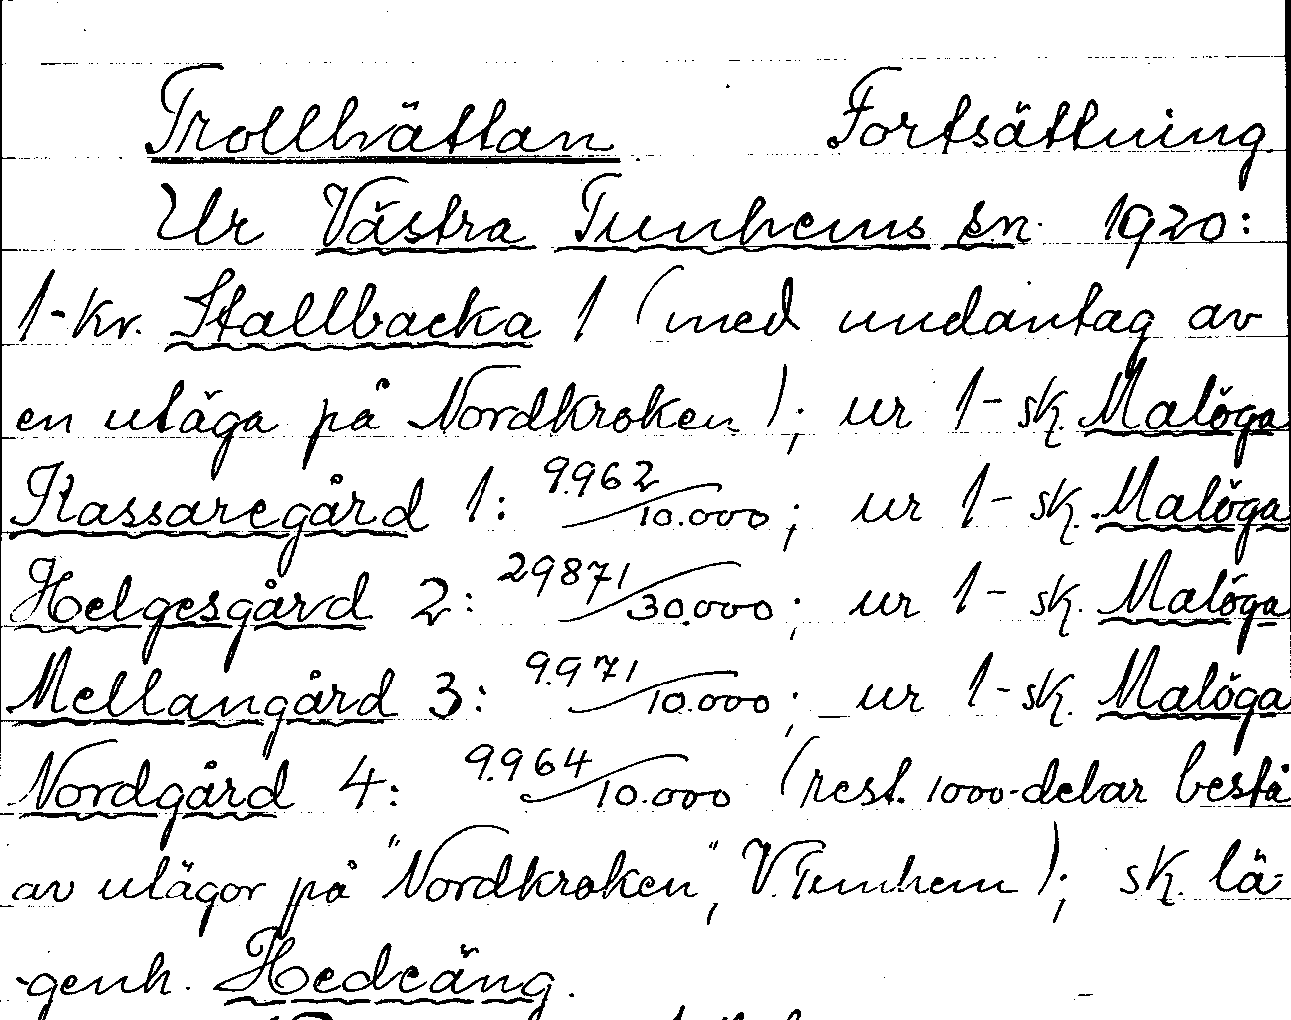 Trollhättan Fortsättning.
Ur Västra Tunhems sn. 1920:
1-kr. Stallbacka 1 (med undantag av
en utäga på Nordkroken); ur 1-sk. Malöga
Kassaregård 1: 9.962/10.000; ur 1-sk. Malöga
Helgesgård 2: 29871/30.000; ur 1-sk. Malöga
Mellangård 3: 9.971/10.000; ur 1-sk. Malöga
Nordgård 4: 9.964/10.000 (rest. 1000-delar bestå
av utägor på "Nordkroken", V. Tunhem); sk. lä-
-genh. Hedeäng.